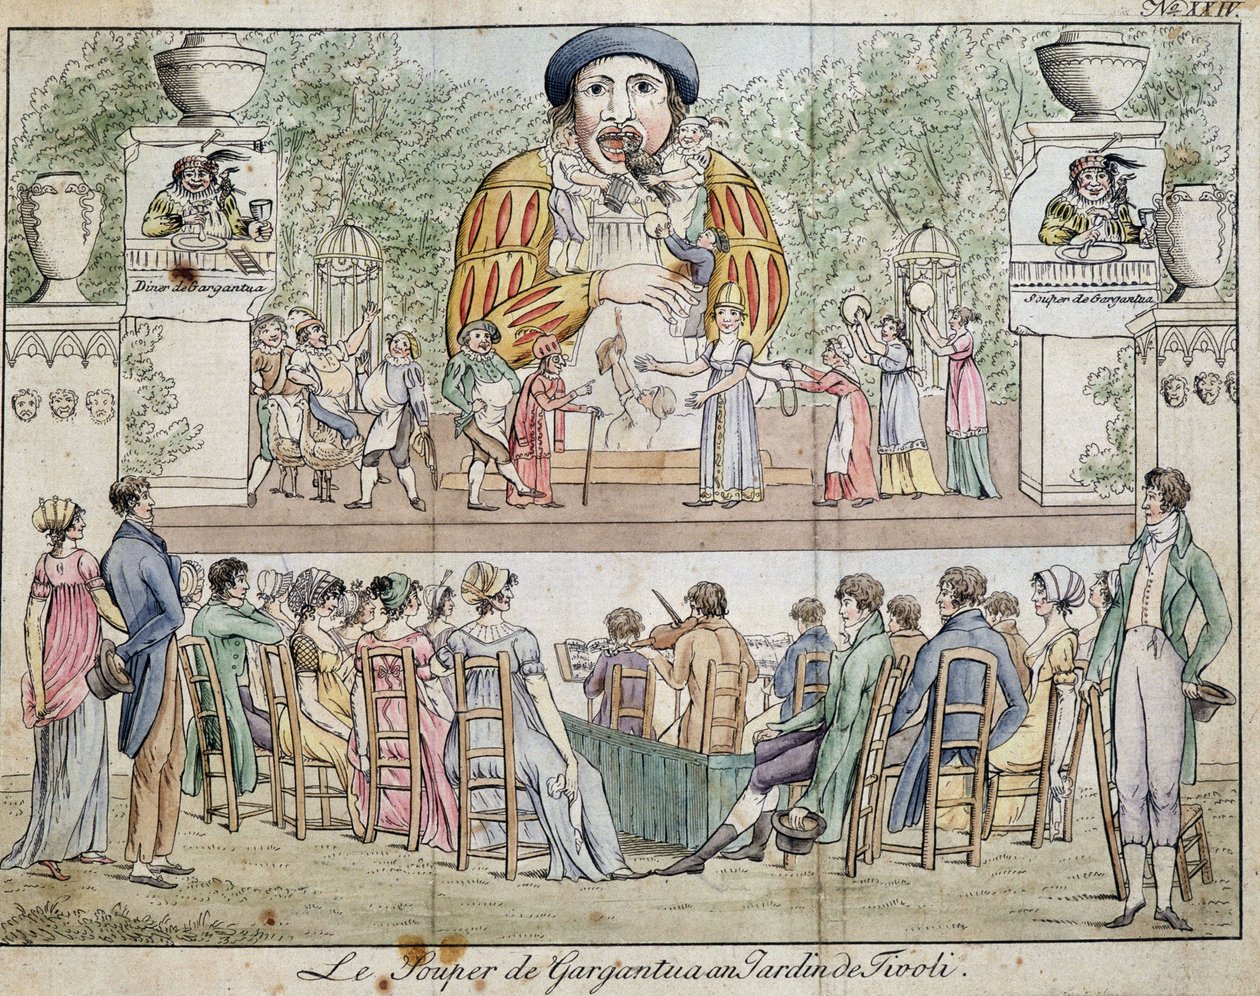 No. XXIV.
Diner de Gargantua
Souper de Gargantua
Le Souper de Gargantua au Jardin de Tivoli.